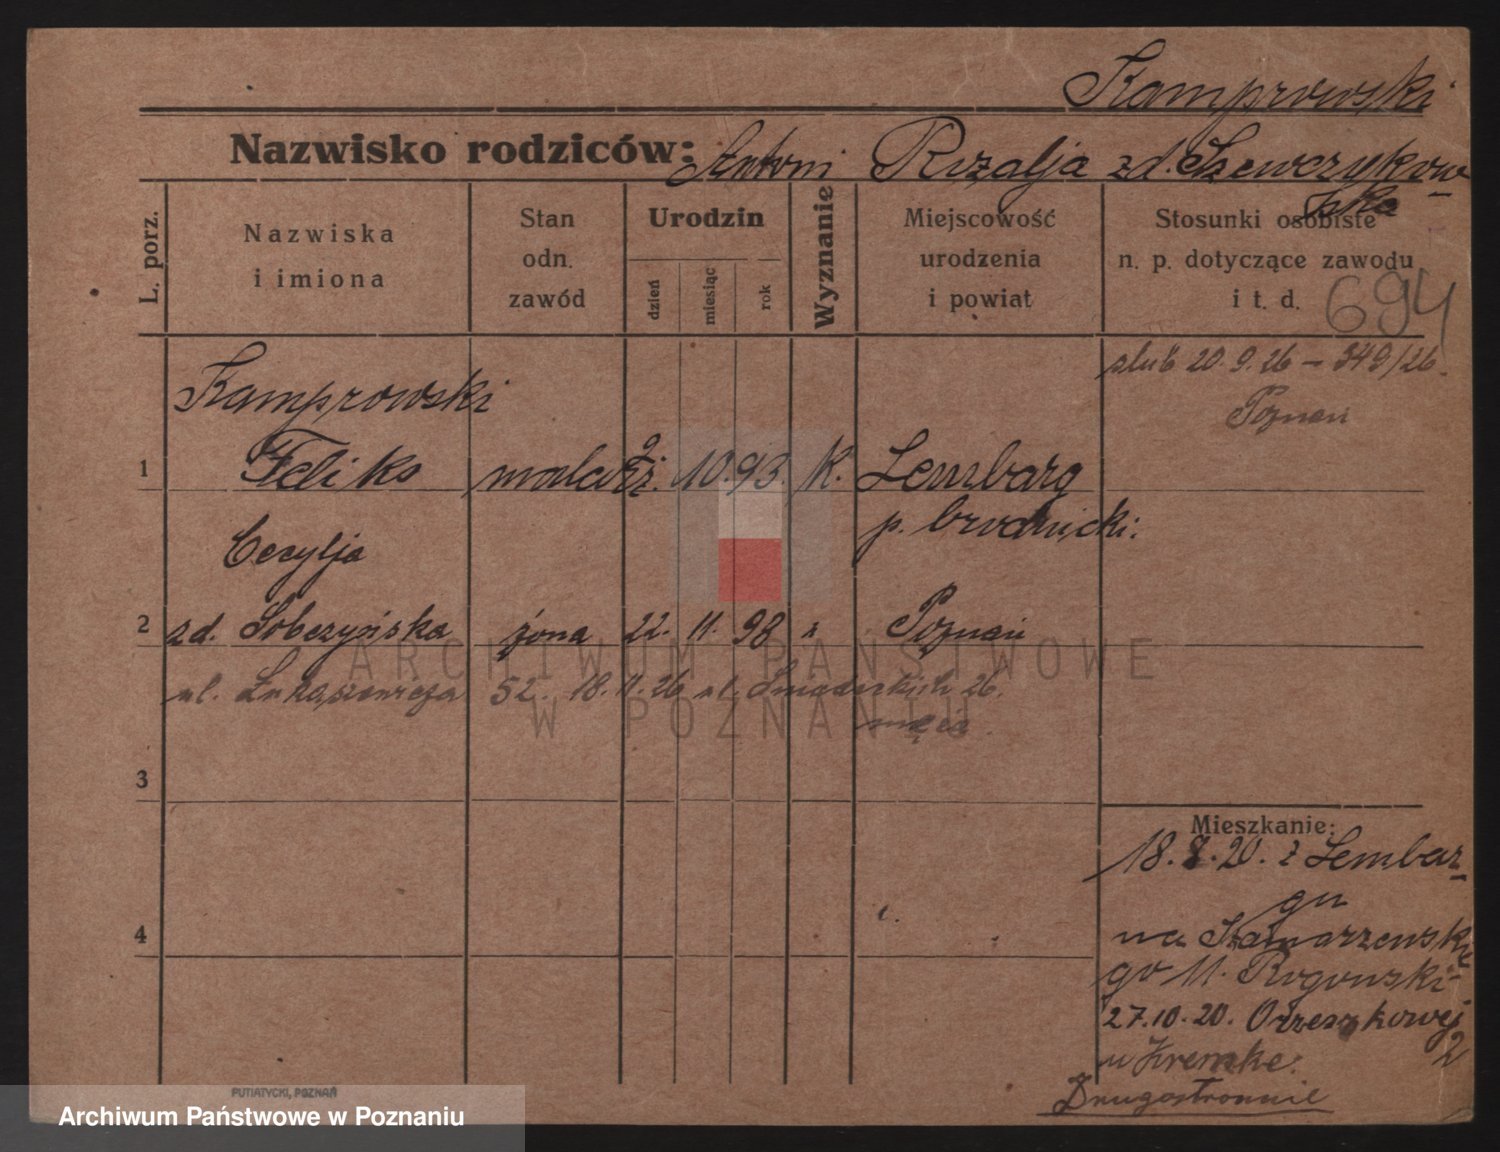 Kamprowski
Nazwisko rodziców: Antoni Rozalja zd. Szewczykow-
ska
L. porz.
Nazwiska
i imiona
Stan
odn.
zawód
Urodzin
dzień
miesiąc
rok
Wyznanie
Miejscowość
urodzenia
i powiat
Stosunki osobiste
n. p. dotyczące zawodu
i t. d.
694
ślub 20.9.26 – 349/26.
Poznań
Kamprowski
1 Feliks malarz 10. 93. K. Lembarg
p. brodnicki.
Cecylja
2 zd. Sobczyńska żona 22. 11. 98 Poznań
ul. Łukaszewicza 52. 18.11.26 ul. Śniadeckich 26.
3
4
Mieszkanie:
18.8.20. z Lembar-
gu
na Szamarzewskie
go 11. Rogowski-
27.10.20. Orzeszkowej
2
u Kremke.
Drugostronnie
PUTIATYCKI, POZNAŃ
ARCHIWUM PAŃSTWOWE
W POZNANIU
Archiwum Państwowe w Poznaniu